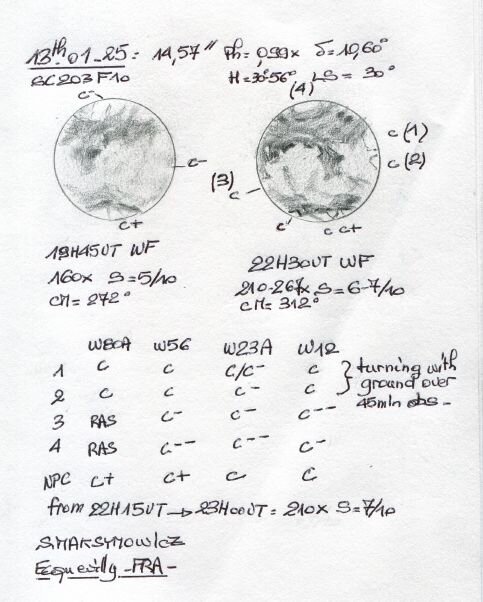 13th.01-25: 14,57" Ph=0,99x δ=10,60°
SC203F10 H=30°56° LS=30°
C-
(4)
C(1)
C(2)
C-
(3)
C
C+
C
C C+
19H45UT WF
160x S=5/10
CM=272°
22H30UT WF
210-267x S=6-7/10
CM=312°
W80A W56 W23A W12
1 C C C/C- C } turning with
2 C C C- C ground over
45min obs-
3 RAS C- C- C--
4 RAS C-- C-- C-
NPC C+ C+ C C
from 22H15UT → 23H00UT = 210x S=7/10
S.MAKSYMOWICZ
Ecquevilly-FRA-